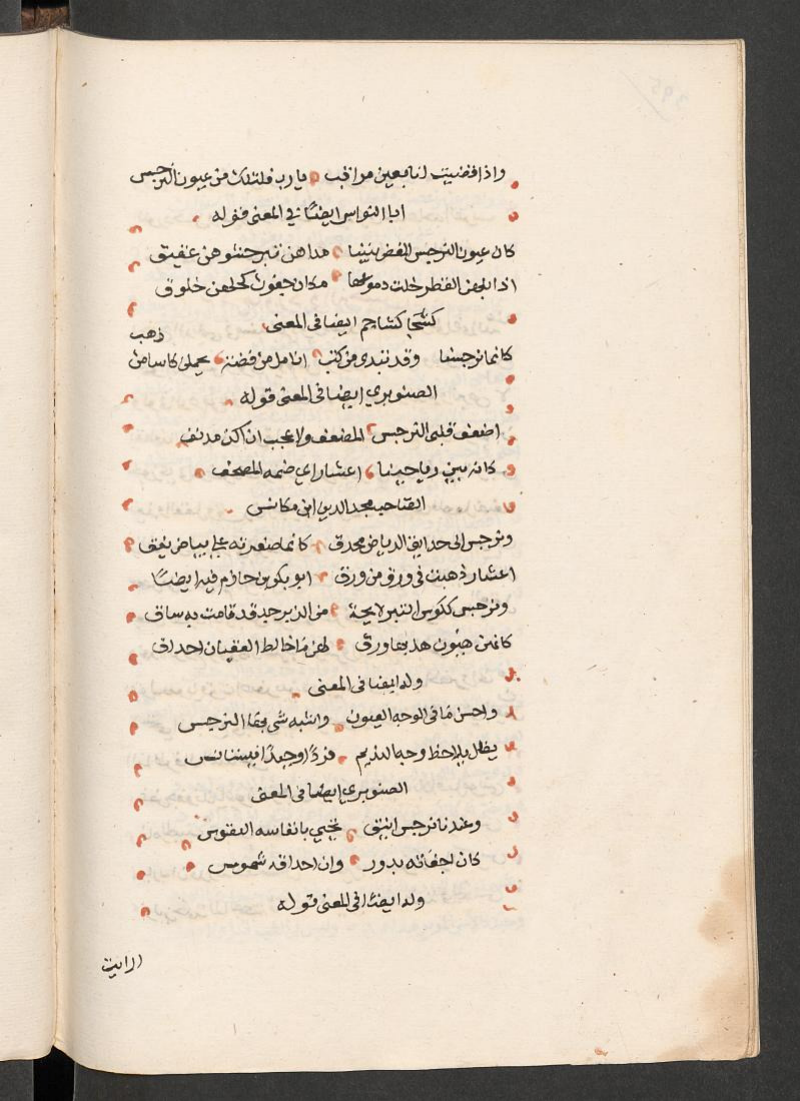 واذا قضيت لنا بعين مراقب يا رب فلتك من عيون النرجس
ابا النواس ايضاً في المعنى قوله
كان عيون النرجس الغض بيننا مداهن تبر حشوهن عقيق
اذا بلهن القطر خلت دموعها بكاء جفون كحلهن خلوق
كشجا كشاجم ايضا في المعنى
كانما نرجسنا وقد تبدى من كثب انامل من فضة يحملن كاسا من ذهب
الصنوبري ايضا في المعنى قوله
اضعف قلبي النرجس المضعف ولا عجب ان اكن مدنف
كانه بين رياحيننا اعشار اي ضمه المصحف
الصاحب مجد الدين ابن مكانس
ونرجس الى حدايق الرياض محدق كانما صفرته على بياض يقق
اعشار ذهبت في ورق من ورق ابو بكر بن حازم فيه ايضاً
ونرجس ككوس التبر لايحة من الزبرجد قد قامت به ساق
كانهن عيون هدبها ورق لهن ما خالط العقيان احداق
وله ايضا في المعنى
واحسن ما في الوجه العيون واشبه شي بها النرجس
يظل يلاحظ وجه النديم فردًا وحيدًا فيستانس
الصنوبري ايضا في المعنى
وعندنا نرجس انيق تحيي بانفاسه النفوس
كان اجفانه بدور وان احداقه شموس
وله ايضًا في المعنى قوله
ارايت